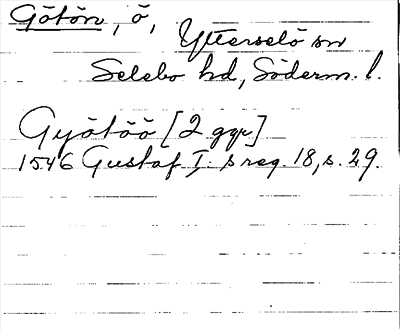 Götön, ö,
Ytterselö sn
Selebo hd, Söderm. l.
Gyötöö [2 ggr]
1546 Gustaf I:s reg. 18, s. 29.